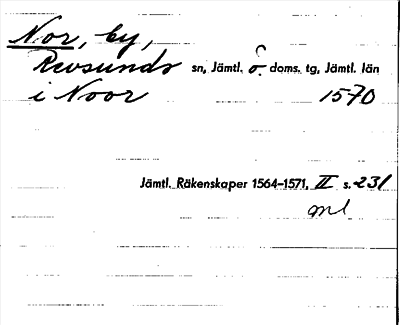 Nor, by,
Revsunds sn, Jämtl. ö. doms. tg, Jämtl. län
i Noor 1570
Jämtl. Räkenskaper 1564–1571, II s. 231